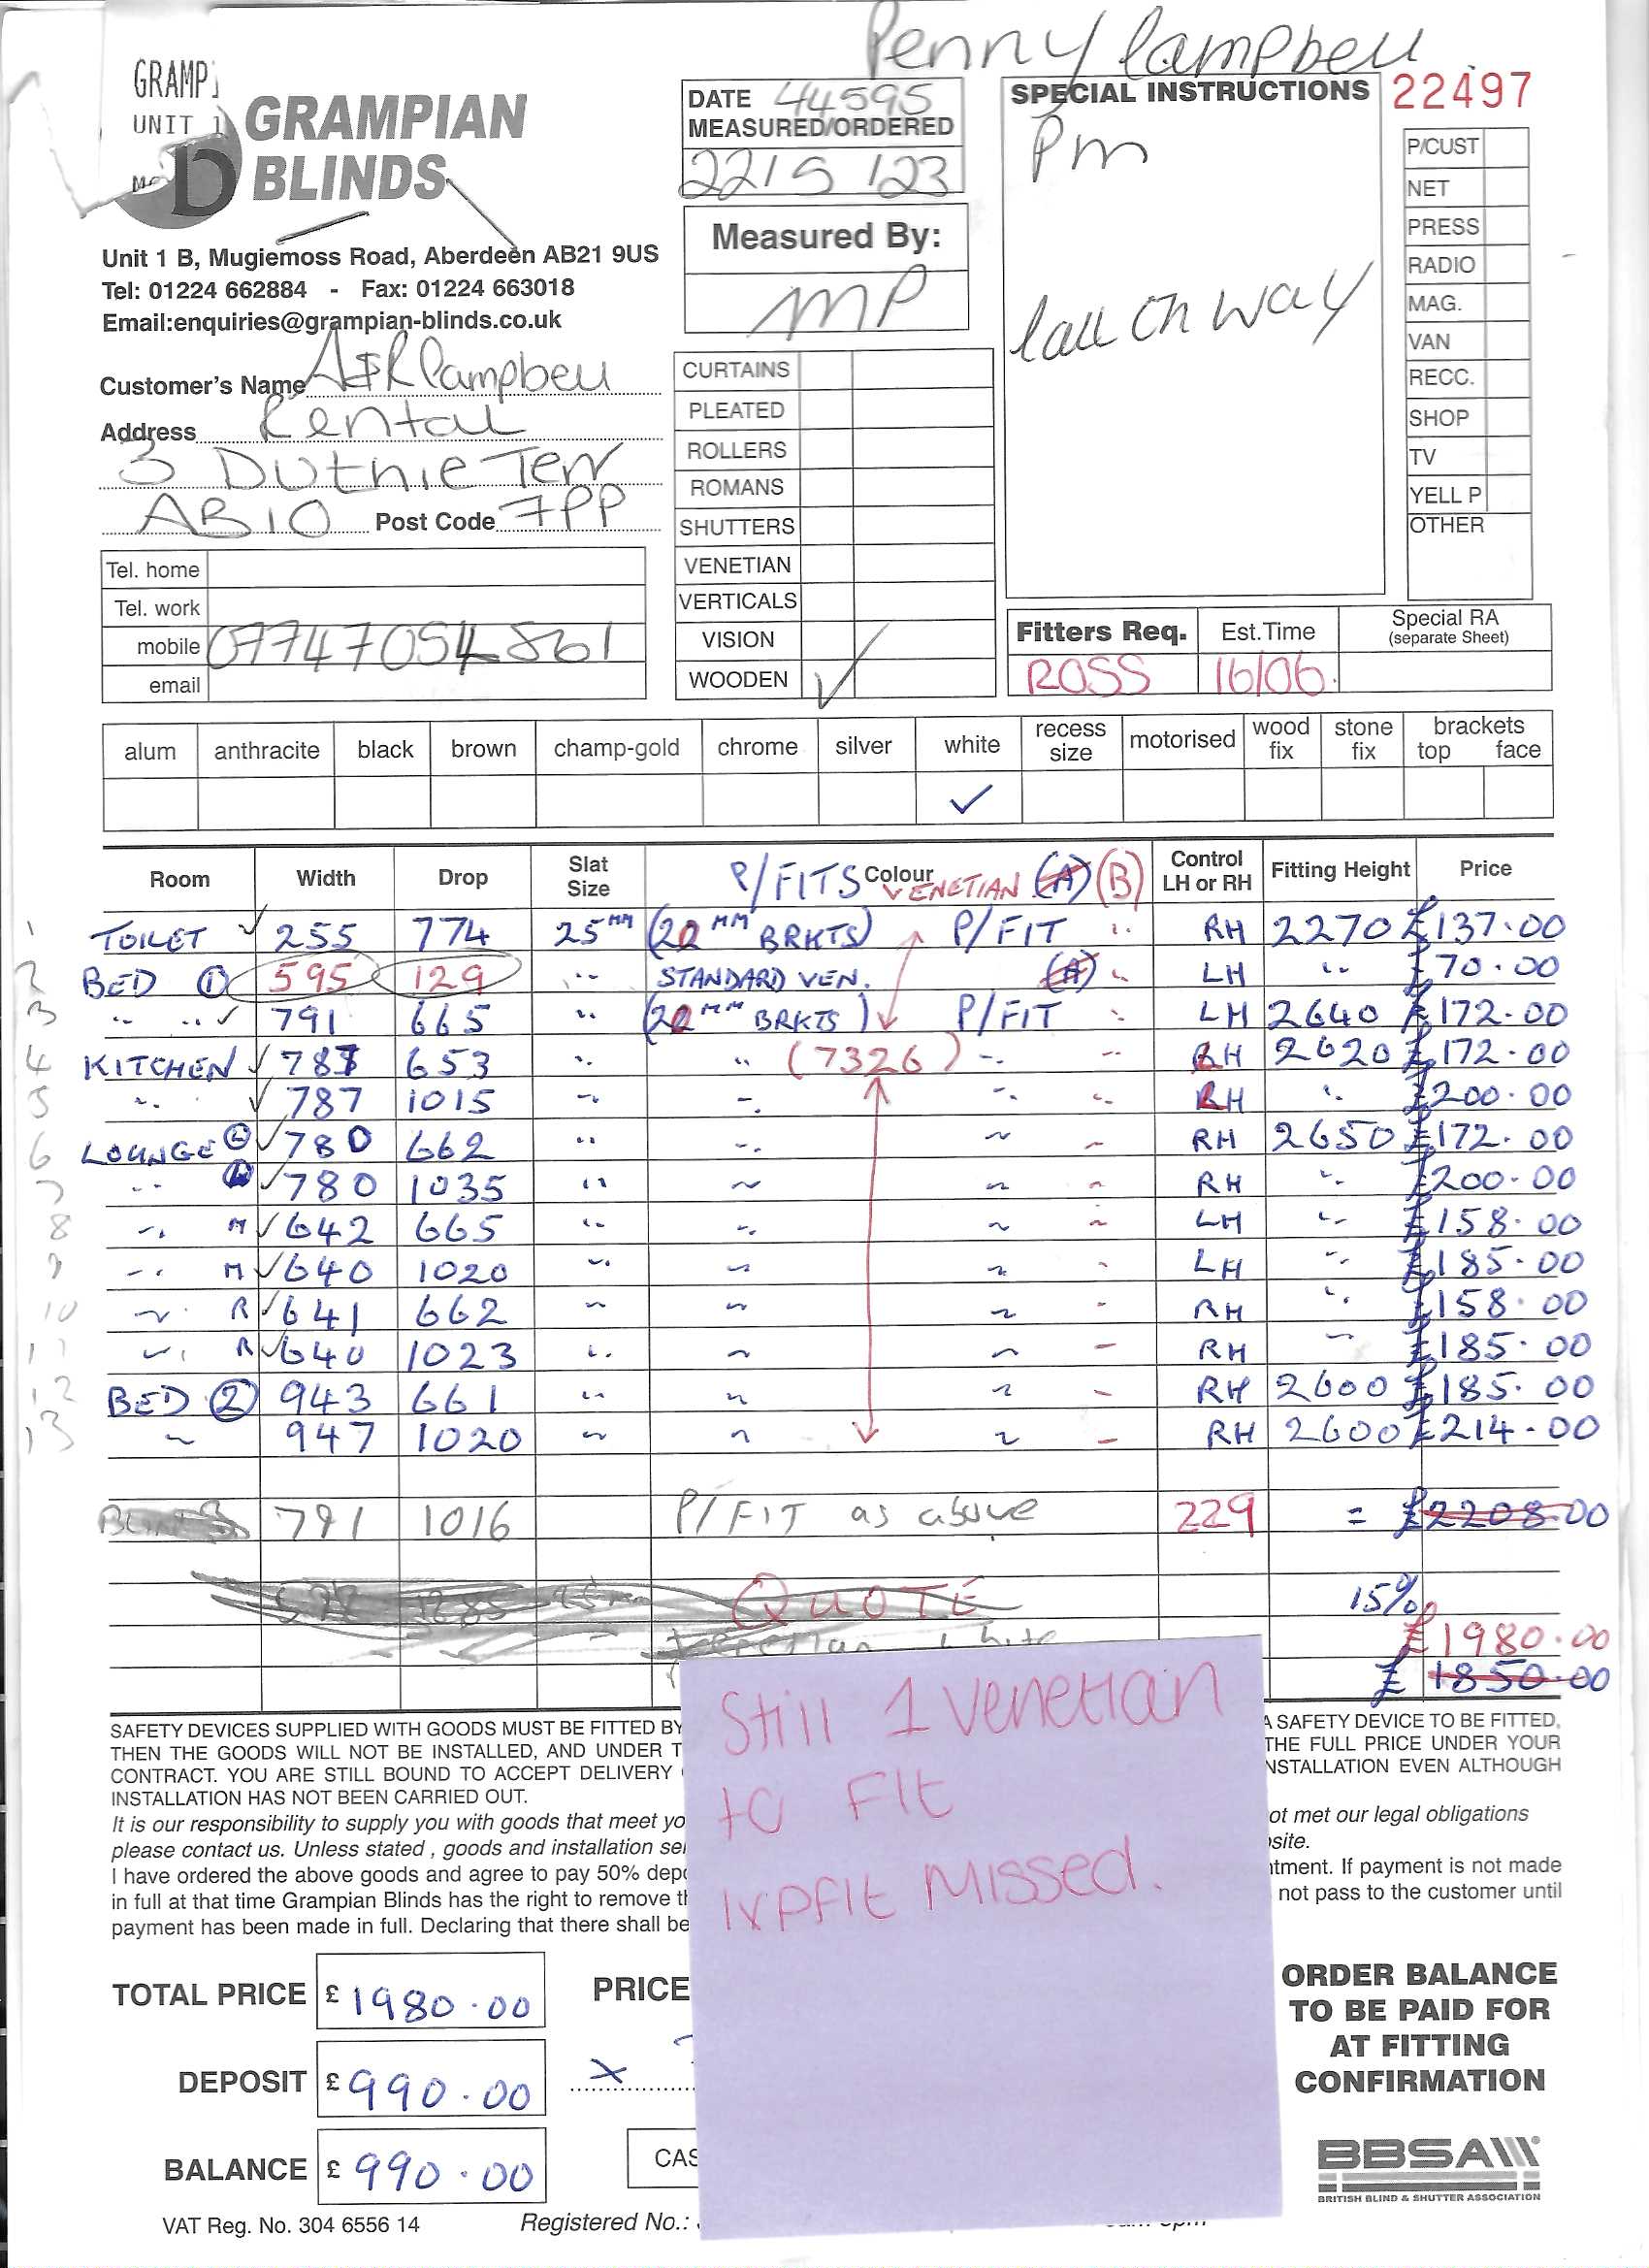 Penny Campbell
GRAMPI
UNIT 1
GRAMPIAN
BLINDS
Unit 1 B, Mugiemoss Road, Aberdeen AB21 9US
Tel: 01224 662884 - Fax: 01224 663018
Email:enquiries@grampian-blinds.co.uk
Customer's Name A&R Campbell
Address Rental
3 Duthie Terr
AB10 Post Code 7PP
Tel. home
Tel. work
mobile 07747054861
email
DATE 44595
MEASURED/ORDERED
22/5/23
Measured By:
MP
CURTAINS
PLEATED
ROLLERS
ROMANS
SHUTTERS
VENETIAN
VERTICALS
VISION
WOODEN ✓
SPECIAL INSTRUCTIONS
Pm
Call on way
22497
P/CUST
NET
PRESS
RADIO
MAG.
VAN
RECC.
SHOP
TV
YELL P
OTHER
Fitters Req. Est.Time Special RA (separate Sheet)
ROSS 16/06
alum anthracite black brown champ-gold chrome silver white recess size motorised wood fix stone fix brackets top face
✓
Room Width Drop Slat Size P/FITS Colour VENETIAN (A) (B) Control LH or RH Fitting Height Price
1 TOILET ✓ 255 774 25MM (20MM BRKTS) P/FIT " RH 2270 £137.00
2 BED 1 595 129 " STANDARD VEN. (A) " LH " £70.00
3 " " ✓ 791 665 " (20MM BRKTS) P/FIT " LH 2640 £172.00
4 KITCHEN ✓ 787 653 " " (7326) " " H 2620 £172.00
5 " ✓ 787 1015 " " " " H " £200.00
6 LOUNGE L ✓ 780 662 " " " " RH 2650 £172.00
7 " ✓ 780 1035 " " " " RH " £200.00
8 " M ✓ 642 665 " " " " LH " £158.00
9 " M ✓ 640 1020 " " " " LH " £185.00
10 " R ✓ 641 662 " " " " RH " £158.00
11 " R ✓ 640 1023 " " " " RH " £185.00
12 BED 2 943 661 " " " " RH 2600 £185.00
13 " 947 1020 " " " " RH 2600 £214.00
791 1016 P/FIT as above 229 = £2208.00
QUOTE 15%
£1980.00
£1850.00
Still 1 venetian
to Fit
1xpfit Missed.
SAFETY DEVICES SUPPLIED WITH GOODS MUST BE FITTED BY A SAFETY DEVICE TO BE FITTED,
THEN THE GOODS WILL NOT BE INSTALLED, AND UNDER T THE FULL PRICE UNDER YOUR
CONTRACT. YOU ARE STILL BOUND TO ACCEPT DELIVERY NSTALLATION EVEN ALTHOUGH
INSTALLATION HAS NOT BEEN CARRIED OUT.
It is our responsibility to supply you with goods that meet yo ot met our legal obligations
please contact us. Unless stated , goods and installation ser site.
I have ordered the above goods and agree to pay 50% depo tment. If payment is not made
in full at that time Grampian Blinds has the right to remove th not pass to the customer until
payment has been made in full. Declaring that there shall be
TOTAL PRICE £ 1980.00 PRICE
DEPOSIT £ 990.00 x
BALANCE £ 990.00 CAS
ORDER BALANCE
TO BE PAID FOR
AT FITTING
CONFIRMATION
BBSA
BRITISH BLIND & SHUTTER ASSOCIATION
VAT Reg. No. 304 6556 14 Registered No.: